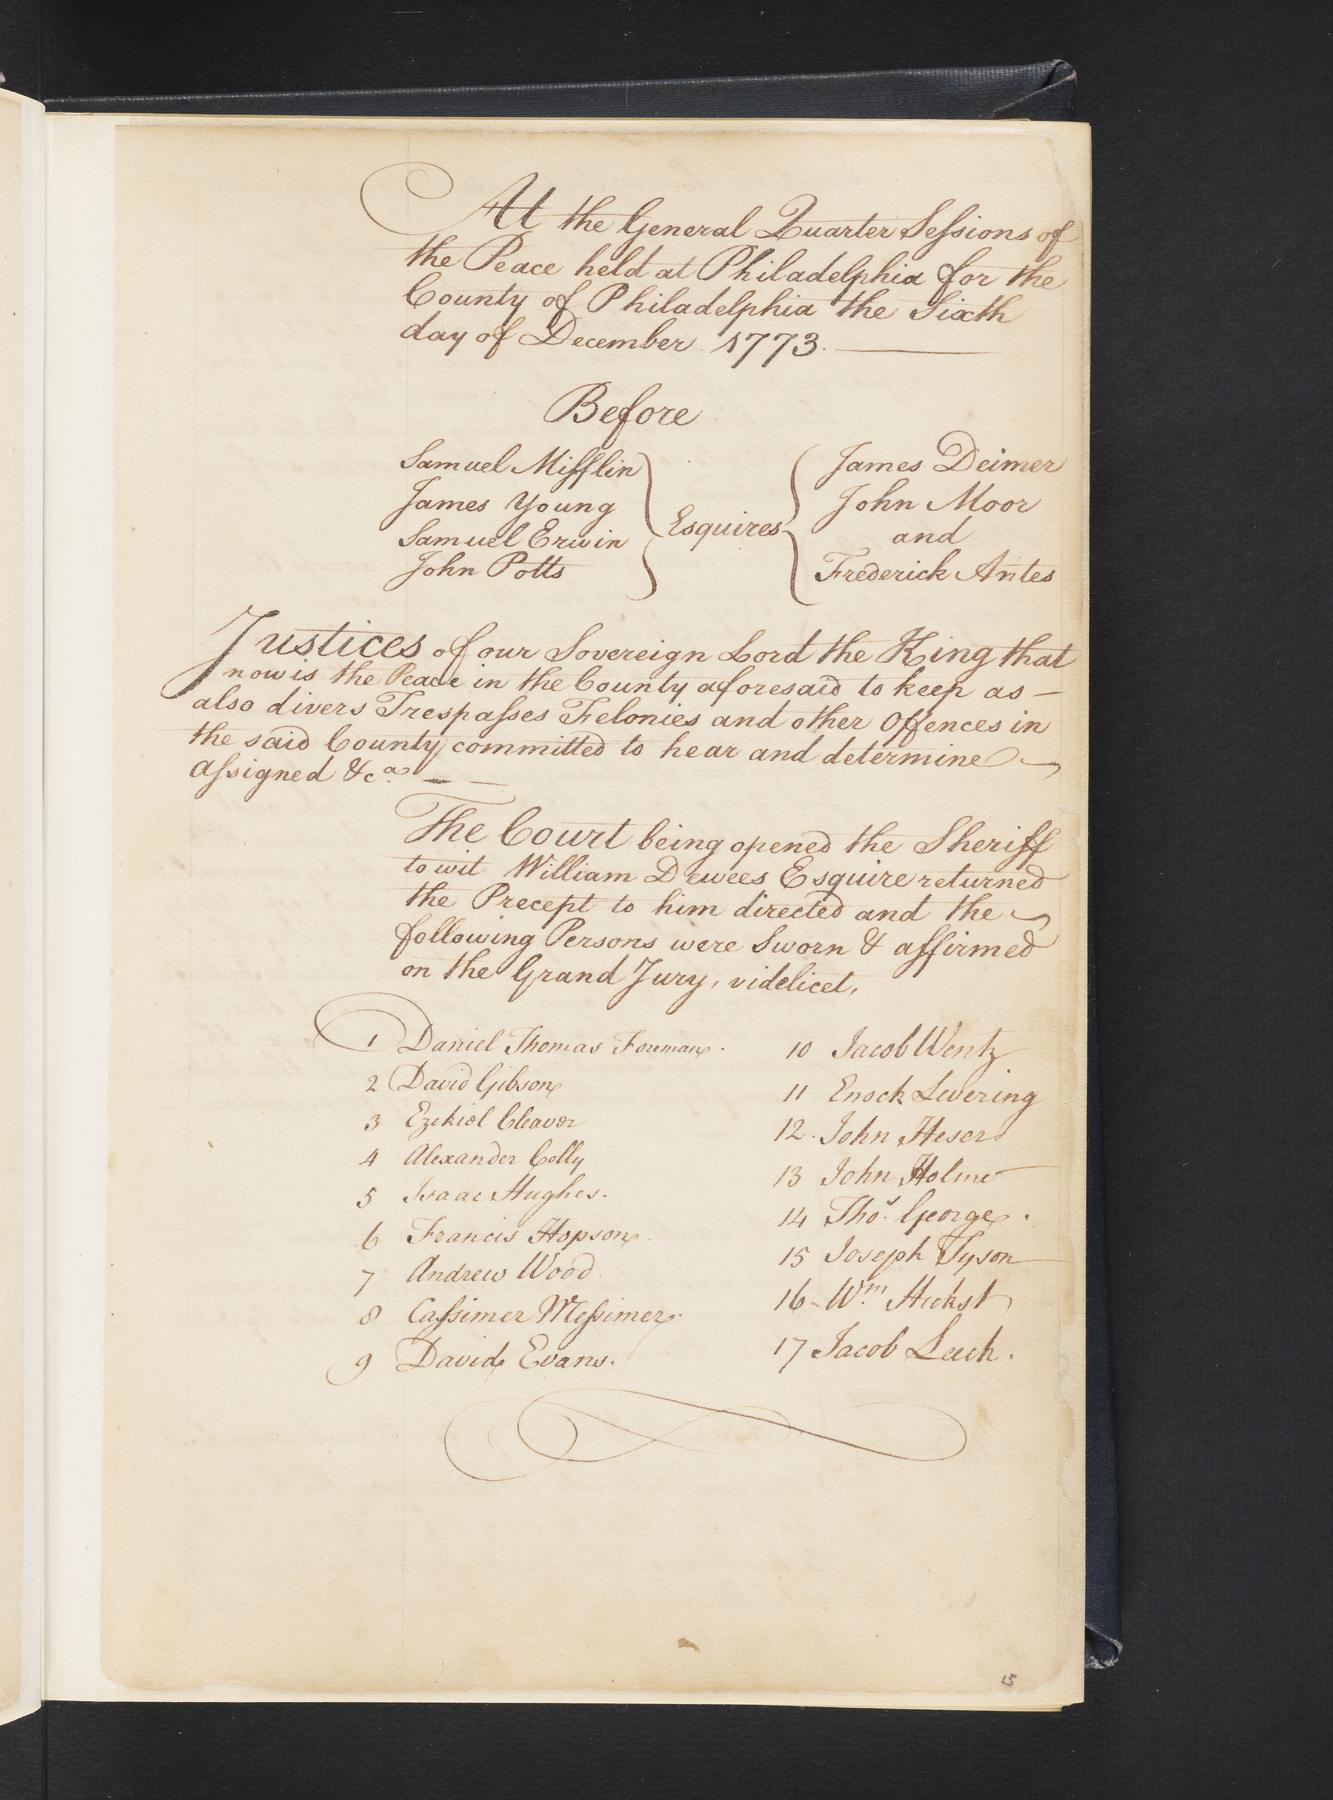 At the General Quarter Sessions of
the Peace held at Philadelphia for the
County of Philadelphia the Sixth
day of December 1773.
Before
Samuel Mifflin
James Young
Samuel Erwin
John Potts
Esquires
James Deimer
John Moor
and
Frederick Antes
Justices of our Sovereign Lord the King that
now is the Peace in the County aforesaid to keep as
also divers Trespasses Felonies and other Offences in
the said County committed to hear and determine
Assigned &c.a
The Court being opened the Sheriff
to wit William Dewees Esquire returned
the Precept to him directed and the
following Persons were Sworn & affirmed
on the Grand Jury, videlicet,
1 Daniel Thomas Foreman.
2 David Gibson
3 Ezekiel Cleaver
4 Alexander Colly
5 Isaac Hughes.
6 Francis Hopson
7 Andrew Wood
8 Cassimer Messimer.
9 David Evans.
10 Jacob Wentz
11 Enock Levering
12. John Heser
13 John Holme
14 Thos. George.
15 Joseph Tyson
16 - Wm. Hickst
17 Jacob Leech.
15